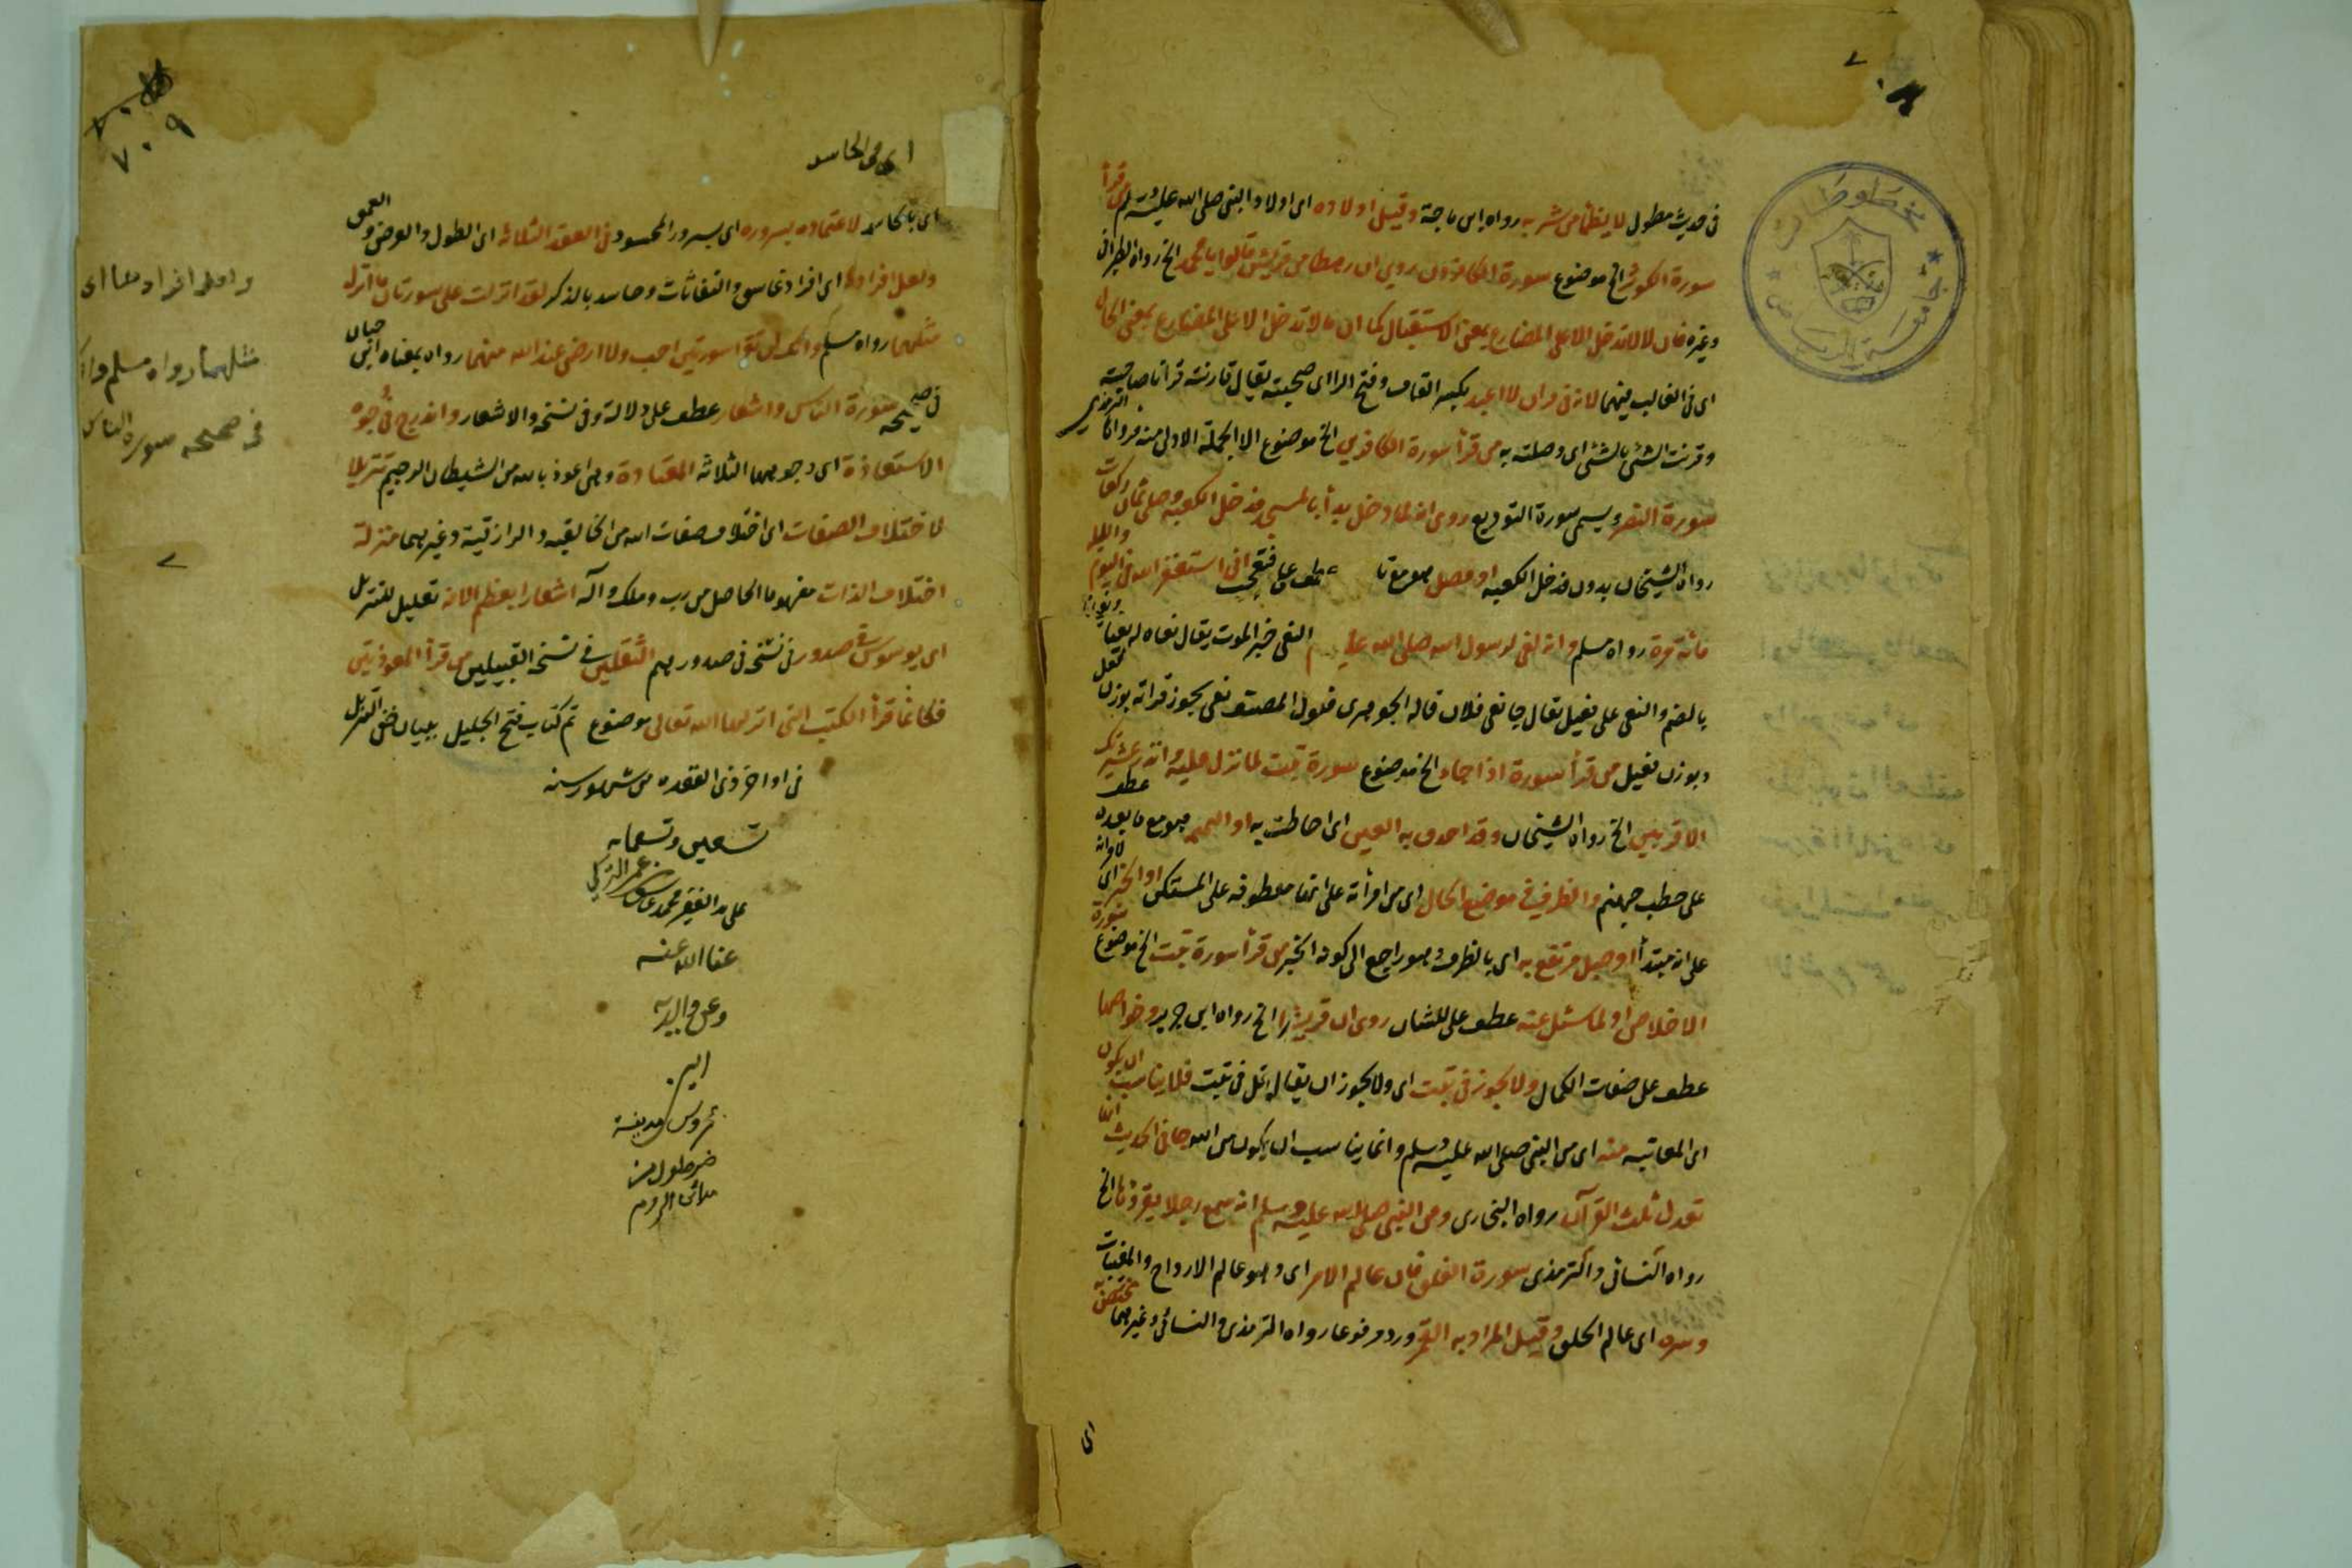 في حديث مطول لا يظمأ من شرب به رواه ابن ماجة وقيل اولاده اى اولاد النبي صلى الله عليه وسلم من قرأ
سورة الكوثر الخ موضوع سورة الكافرون روي ان رهطا من قريش قالوا يا محمد الخ رواه الطبراني
وغيره فان لا لا تدخل الا على المضارع بمعنى الاستقبال كما ان ما لا تدخل الا على المضارع بمعنى الحال
اى في الغالب فيهما لا اعبد بكسر القاف وفتح الراء اى صحبته يقال قارنته قرانا صاحبته
وقرنت الشئ بالشئ اى وصلته به من قرأ سورة الكافرين الخ موضوع الا الجملة الاولى منه الترمذي
سورة النصر ويسمى سورة التوديع روى انه لما دخل بدأ بالمسجد فدخل الكعبة وصلى ثمان ركعات
رواه الشيخان بدون فدخل الكعبة او فصل عطف على فتعجب انى استغفر الله في اليوم والليلة
مائة مرة رواه مسلم وانه لنعى لرسول الله صلى الله عليه وسلم النعى خبر الموت يقال نعاه له نعيا
بالضم والنعى على فعيل يقال جا نعى فلان قاله الجوهري فقول المصنف نعى يجوز قراءته بوزن فعل
وبوزن فعيل من قرأ سورة اذا جاء الخ موضوع سورة تبت لما نزل عليه وانذر عشيرتك
الاقربين الخ رواه الشيخان وقد احدق به العير اى احاطت به او النميمة فهو مع ما بعده عطف
على حطب جهنم والظرف في موضع الحال اى من امرأته على انها معطوفة على المستكن او الخبر اى
على انه مبتدأ او حبل مرتفع به اى بالظرف وهو راجع الى كونه الخبر من قرأ سورة تبت الخ موضوع سورة
الاخلاص او لما سئل عنه عطف على للشان روى ان قريشا الخ رواه ابن جرير وخواصها
عطف على صفات الكمال ولا يجوز في تبت اى ولا يجوز ان يقال قل في تبت فلا يناسب ان يكون
اى المعاتبة منه اى من النبي صلى الله عليه وسلم وانما يناسب ان يكون من الله جا في الحديث انها
تعدل ثلث القرآن رواه البخاري وعن النبي صلى الله عليه وسلم انه سمع رجلا يقرؤها الخ
رواه النسائى والترمذى سورة الفلق فان عالم الامر اى وهو عالم الارواح والمغيبات
وسره اى عالم الخلق وقيل المراد به القمر ورد مرفوعا رواه الترمذى والنسائى وغيرهما
اى
٧٠٩
اى من الحاسد
اى بالحاسد لاغتمامه بسروره اى بسرور المحسود في العقد الثلاثة اى الطول والعرض والعمق
ولعل افرادها اى افراد غاسق والنفاثات وحاسد بالذكر لقد انزلت على سورتان ما انزل
مثلهما رواه مسلم وانك لن تقرأ سورتين احب ولا ارضى عند الله منهما رواه بمعناه ابن حبان
في صحيحه سورة الناس واشعار عطف على دلالة وفي نسخة والاشعار واندرج في وجوه
الاستعاذة اى وجوهها الثلاثة المعتادة وهى اعوذ بالله من الشيطان الرجيم تنزيلا
لاختلاف الصفات اى اختلاف صفات الله من الخالقيه والرازقية وغيرهما منزلة
اختلاف الذات مفهوما الحاصل من رب وملك واله اشعارا بعظم الآفة تعليل للتنزيل
اى يوسوس في صدور في نسخة في صدورهم الثقلين في نسخة القبيلين من قرأ المعوذتين
فكانما قرأ الكتب التى انزلها الله تعالى موضوع تم كتاب فتح الجليل ببيان خفى التنزيل
في اواخر ذى القعدة من شهور سنه
تسعين وتسعمايه
على يد الفقير محمد
عفا الله عنه
وعن والديه
مثلهما رواه مسلم
في صحيحه سورة الناس
مخطوطات
جامعة الرياض